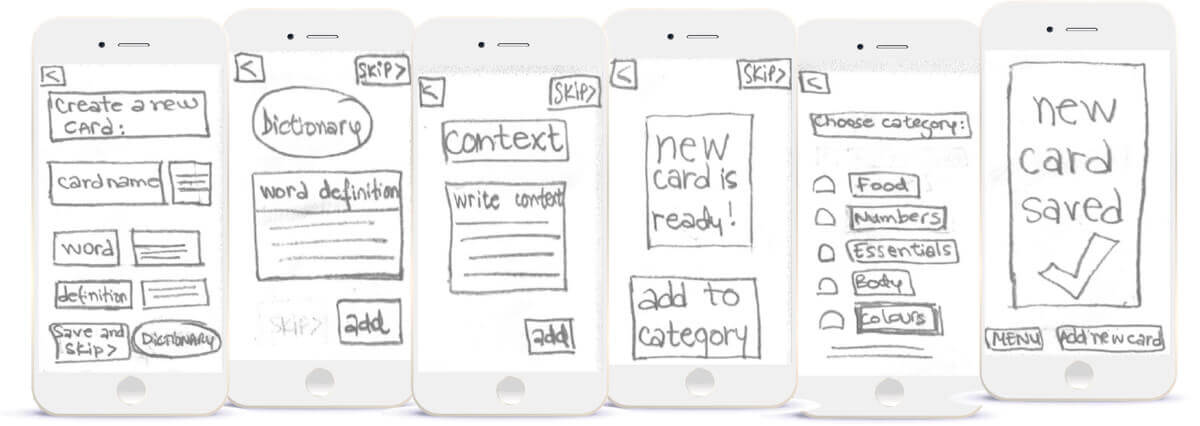 <
Create a new
CARD:
card name
word
definition
Save and
skip>
DICTIONARY
<
SKIP>
Dictionary
word definition
SKIP>
add
<
SKIP>
context
write context
add
<
SKIP>
new
card is
ready!
add to
category
<
Choose category:
Food
Numbers
Essentials
Body
Colours
new
card
saved
MENU
Add new card